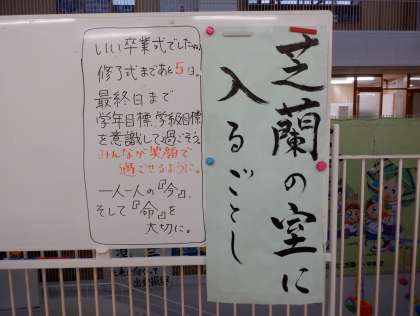 芝蘭の室に
入るごとし
いい卒業式でしたね。
修了式まであと5日。
最終日まで
学年目標、学級目標
を意識して過ごそう。
みんなが笑顔で
過ごせるように。
一人一人の『今』、
そして『命』を
大切に。